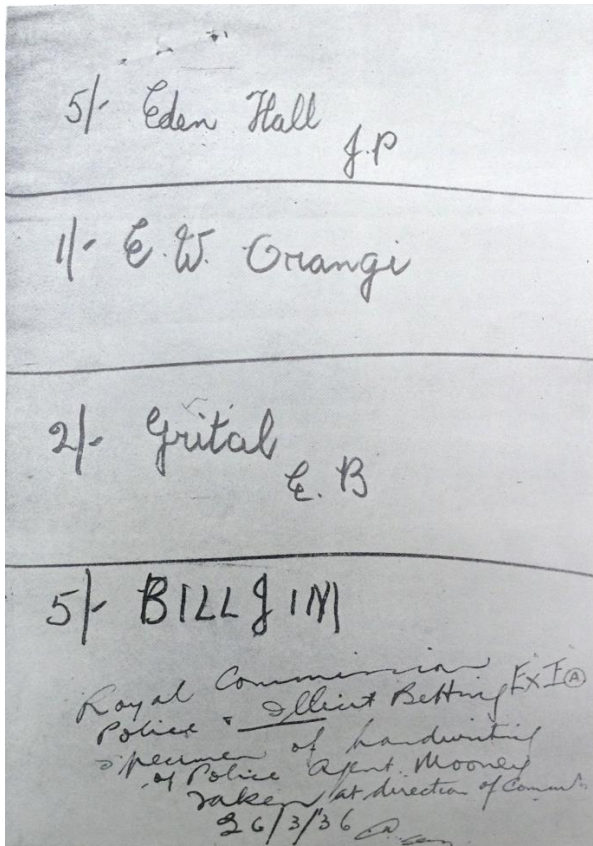 5/- Eden Hall
J.P
1/- E. W. Orangi
2/- Grital
E. B
5/- BILLJIM
Royal Commission Ex I (A)
Police & Illicit Betting
Specimen of handwriting
of Police Agent Mooney
Taken at direction of
26/3/'36